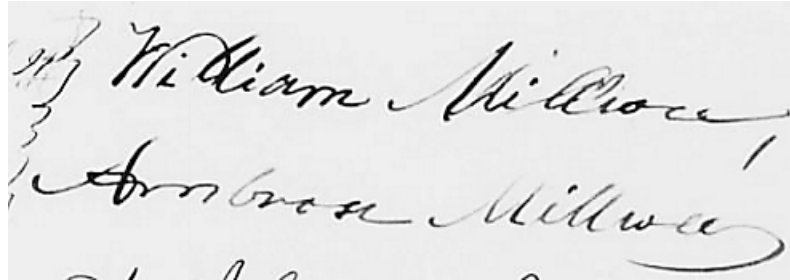 William Millwee,
Ambrose Millwee